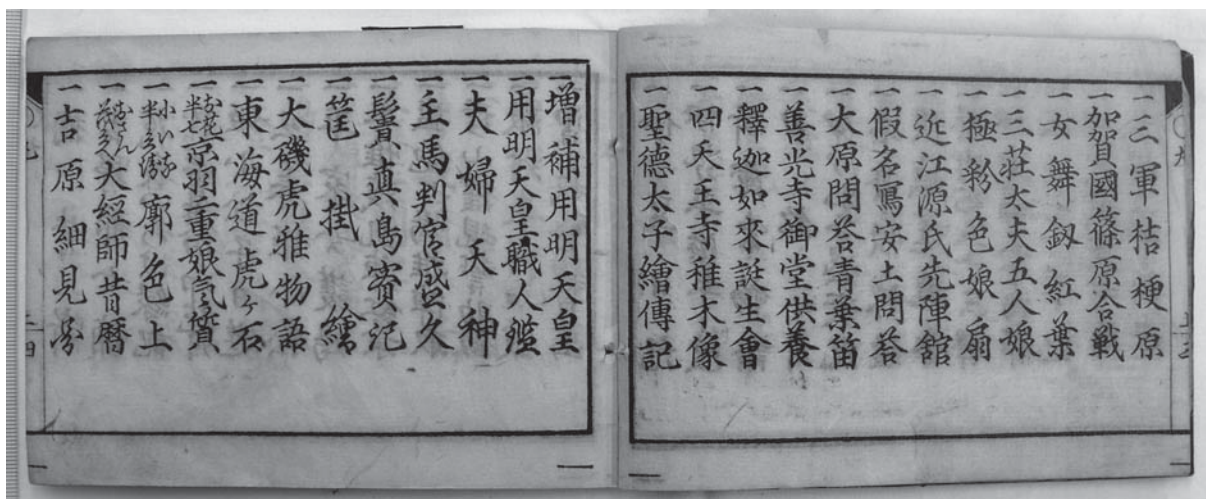 一三軍桔梗原
一加賀國篠原合戦
一女舞釼紅葉
一三荘太夫五人娘
一極彩色娘扇
一近江源氏先陣舘
一假名寫安土問荅
一大原問荅青葉笛
一善光寺御堂供養
一釋迦如來誕生會
一四天王寺稚木像
一聖德太子繪傳記
一増補用明天皇
一用明天皇職人鑑
一夫婦天神
一主馬判官盛久
一鬢真島實記
一筐掛繪
一大磯虎雅物語
一東海道虎ヶ石
一お花半七京羽二重娘気質
一小いな半兵衛廓色上
一おさん茂兵衛大経師昔暦
一吉原細見